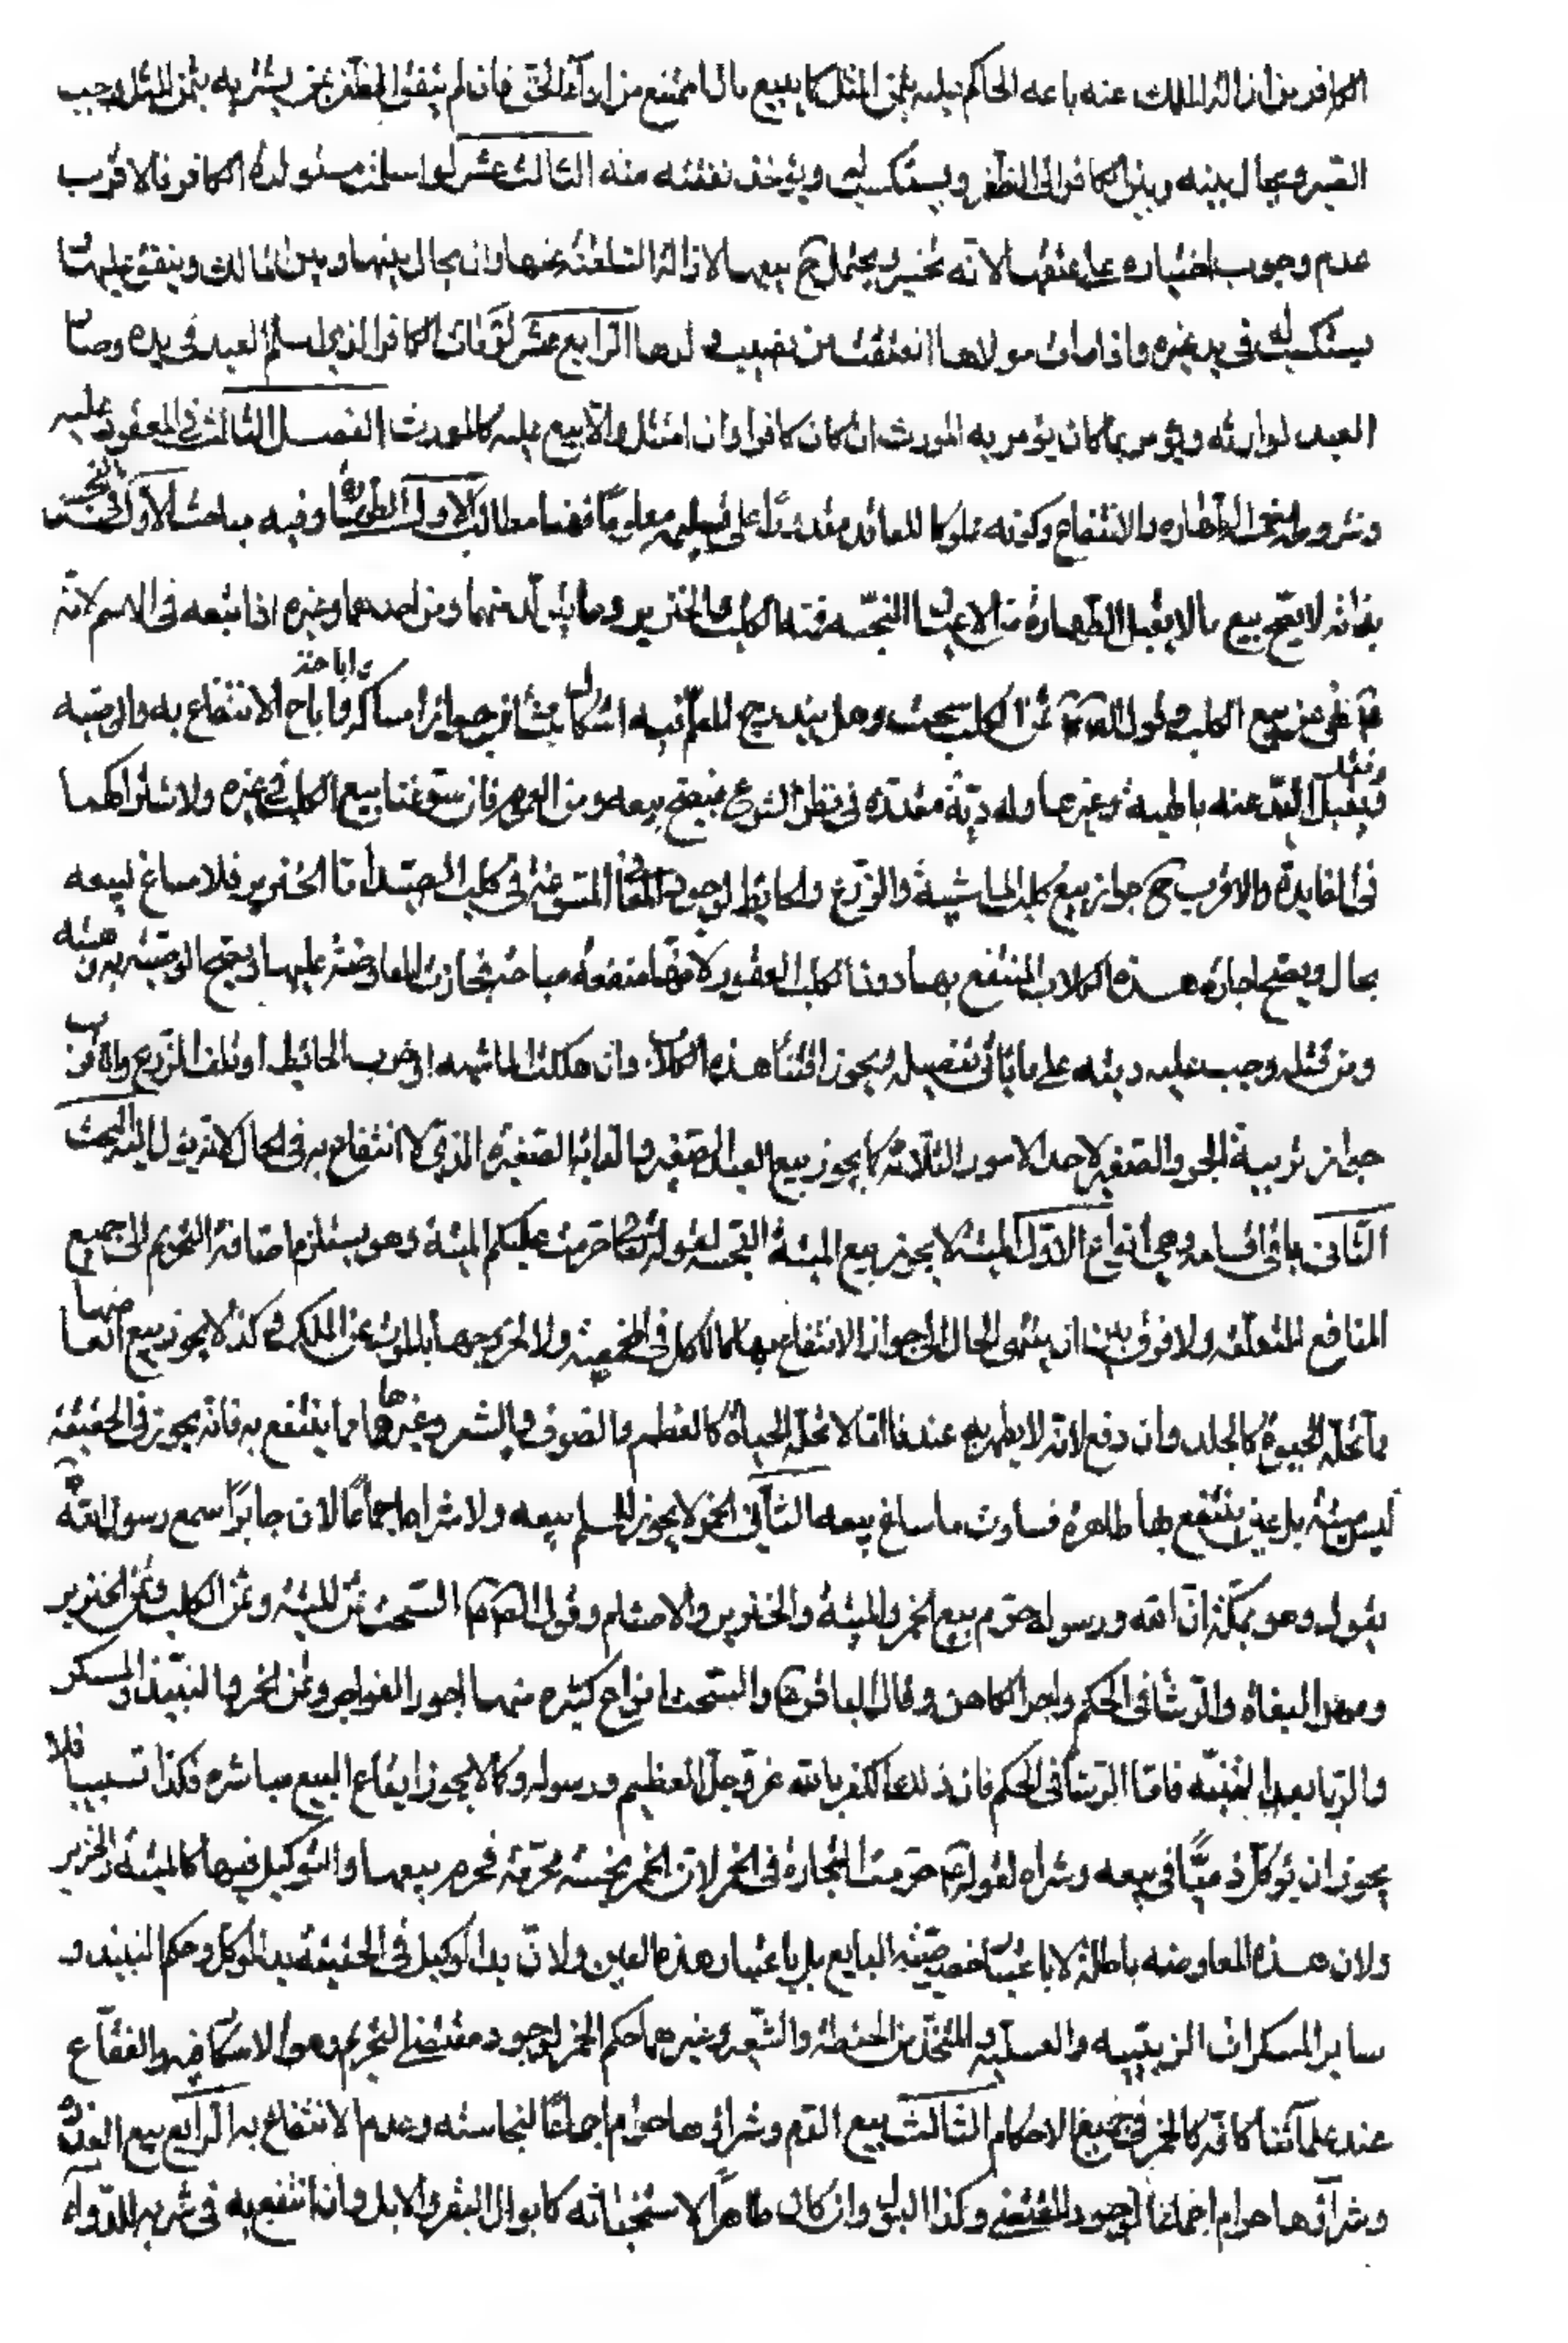 الكافر من ازالة الملك عنه باعه الحاكم عليه بثمن المثل كما يبيع مال الممتنع من اداء الحق فان لم يتفق الظفر بمن يشتريه بثمن المثل وجب
الصبر ويحال بينه وبين الكافر الى الظفر ويستكسب له ويؤخذ نفقته منه الثالث عشر لو اسلمت مستولدة الكافر فالاقرب
عدم وجوب اختياره على عتقها لانه تخسير ويحتمل ح بيعها لازالة السلطنة عنها وان يحال بينها وبين المالك وينفق عليها
يستكسب له في يد غيره واذا مات مولاها انعتقت من نصيب ولدها الرابع عشر لو مات الكافر الذي اسلم العبد في يده وصار
العبد لوارثه ويؤمر بما كان يؤمر به المورث ان كان كافرا وان امتثل والا بيع عليه كالمورث الفصل الثالث في المعقود عليه
وشروطه خمسة الطهارة والانتفاع وكونه مملوكا للعاقد مقدورا على تسليمه معلوما فهنا مطالب الاول الطهارة وفيه مباحث الاول في النجس
بذاته لا يصح بيع ما لا يقبل الطهارة من الاعيان النجسه فمنه الكلب والخنزير وما يتولد منهما ومن احدهما وغيره اذا تبعه في الاسم لانه
نهى عن بيع الكلب ولقول الصادق ثمن الكلب سحت وهل يندرج المعلم فيه اشكال ينشا من جواز امساكه واباحة الانتفاع به والوصية
ونقل اليد عنه بالهبة وغيرها وله دية مقدرة في نظر الشرع فيصح بيعه ومن العموم فان سوغنا بيع الكلب في غيره ولاشتراكهما
في الفايدة والاقرب ح جواز بيع كلب الماشية والزرع والحايط لوجود المعنى المسوغ في كلب الصيد اما الخنزير فلا مساغ لبيعه
بحال ويصح اجارة هذه الكلاب المنتفع بها دون الكلب العقور لانها منفعة مباحة فجازت المعاوضة عليها ويصح الوصية به وهبته
ومن قتله وجب عليه ديته على ما يأتي تفصيله ويجوز اقتناء هذه الكلاب وان هلكت الماشيه او خرب الحائط او تلف الزرع والاقرب
جواز تربية الجرو الصغير لاحد الامور الثلاثة كما يجوز بيع العبد الصغير والدابة الصغيرة الذي لا انتفاع به في الحال لانه يؤل اليه البحث
الثاني باقي اقسامه وهي انواع الاول الميتة لا يجوز بيع الميتة النجسه لقوله تعالى حرمت عليكم الميتة وهو يستلزم اضافة التحريم الى جميع
المنافع المتعلقه ولا فرق بين ان ينتهي الحال الى جواز الانتفاع بها كالاكل في المخمصة ولا لخروجها بالموت عن الملك وكذا لا يجوز بيع ابعاضها
ما تحله الحيوة كالجلد وان دبغ لانه لا يطهر به عندنا اما لا تحله الحياة كالعظم والصوف والشعر وغيرها مما ينتفع به فانه يجوز في الحقيقة
ليس ميتة بل عين ينتفع بها طاهرة فساوت ما ساغ بيعه الثاني الخمر لا يجوز للمسلم بيعه ولا شراه اجماعا لان جابرا سمع رسول الله
يقول وهو بمكة ان الله ورسوله حرم بيع الخمر والميتة والخنزير والاصنام وقول الصادق السحت ثمن الميتة وثمن الكلب وثمن الخنزير
ومهر البغاة والرشا في الحكم واجر الكاهن وقال الباقر والسحت انواع كثيرة منها اجور الفواجر وثمن الخمر والنبيذ المسكر
والربا بعد البينه فاما الرشا في الحكم فان ذلك الكفر بالله عز وجل العظيم ورسوله وكما لا يجوز ايقاع البيع مباشرة فكذا تسبيبا فلا
يجوز ان يؤكل ذميا في بيعه وشراه لقوله حرمت التجارة في الخمر لان الخمر نجسة محرمة فحرم بيعها والتوكيل فيها كالميتة والخنزير
ولان هذه المعاوضه باطلة لا باعتبار خصوصية البايع بل باعتبار هذه العين ولان يد الوكيل في الحقيقة يد الموكل وحكم النبيذ و
ساير المسكرات الزبيبيه والعسليه والمتخذ من الحنطة والشعير وغيرهما حكم الخمر لوجود مقتضى التحريم وهو الاسكار فيه والفقاع
عند علمائنا كافة كالخمر في جميع الاحكام الثالث بيع الدم وشراؤها حرام اجماعا لنجاسته وعدم الانتفاع به الرابع بيع العذرة
وشراؤها حرام اجماعا لوجود المقتضي وكذا البول وان كان طاهرا لاستخباثه كابوال البقر والابل وان انتفع به في شربه للدواء